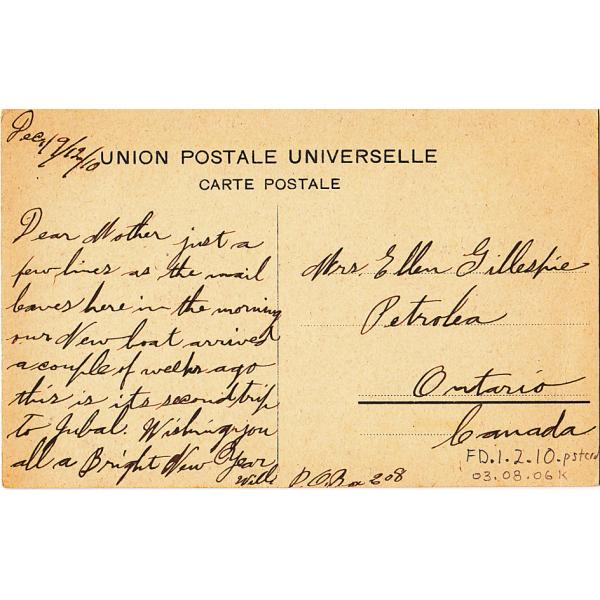 Dec 19/12/10
UNION POSTALE UNIVERSELLE
CARTE POSTALE
Dear Mother just a
few lines as the mail
leaves here in the morning
our New boat arrived
a couple of weeks ago
this is its second trip
to Jubal. Wishing you
all a Bright New Year
Will
P.O. Box 208
Mrs. Ellen Gillespie
Petrolea
Ontario
Canada
FD.1.2.10-pstcrd
03.08.06K